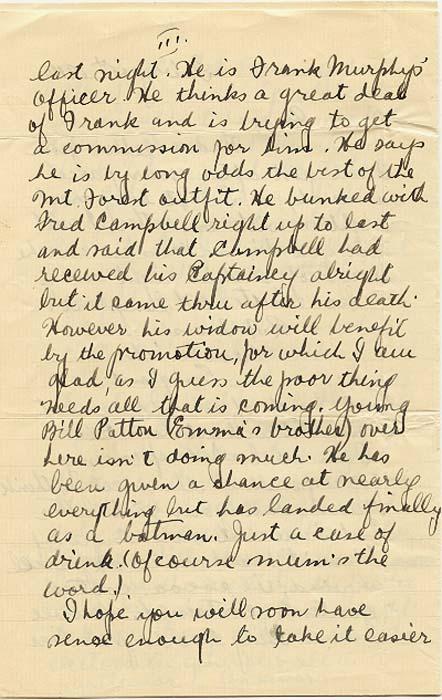 III.
last night. He is Frank Murphys'
Officer. He thinks a great deal
of Frank and is trying to get
a commission for him. He says
he is by long odds the best of the
Mt Forest outfit. He bunked with
Fred Campbell right up to last
and said that Campbell had
received his Captaincy alright
but it came thru after his death.
However his widow will benefit
by the promotion, for which I am
glad, as I guess the poor thing
needs all that is coming. Young
Bill Patton (Emma's brother) over
here isn't doing much. He has
been given a chance at nearly
everything but has landed finally
as a batman. Just a case of
drink. (Of course mum's the
word.).
I hope you will soon have
sense enough to take it easier